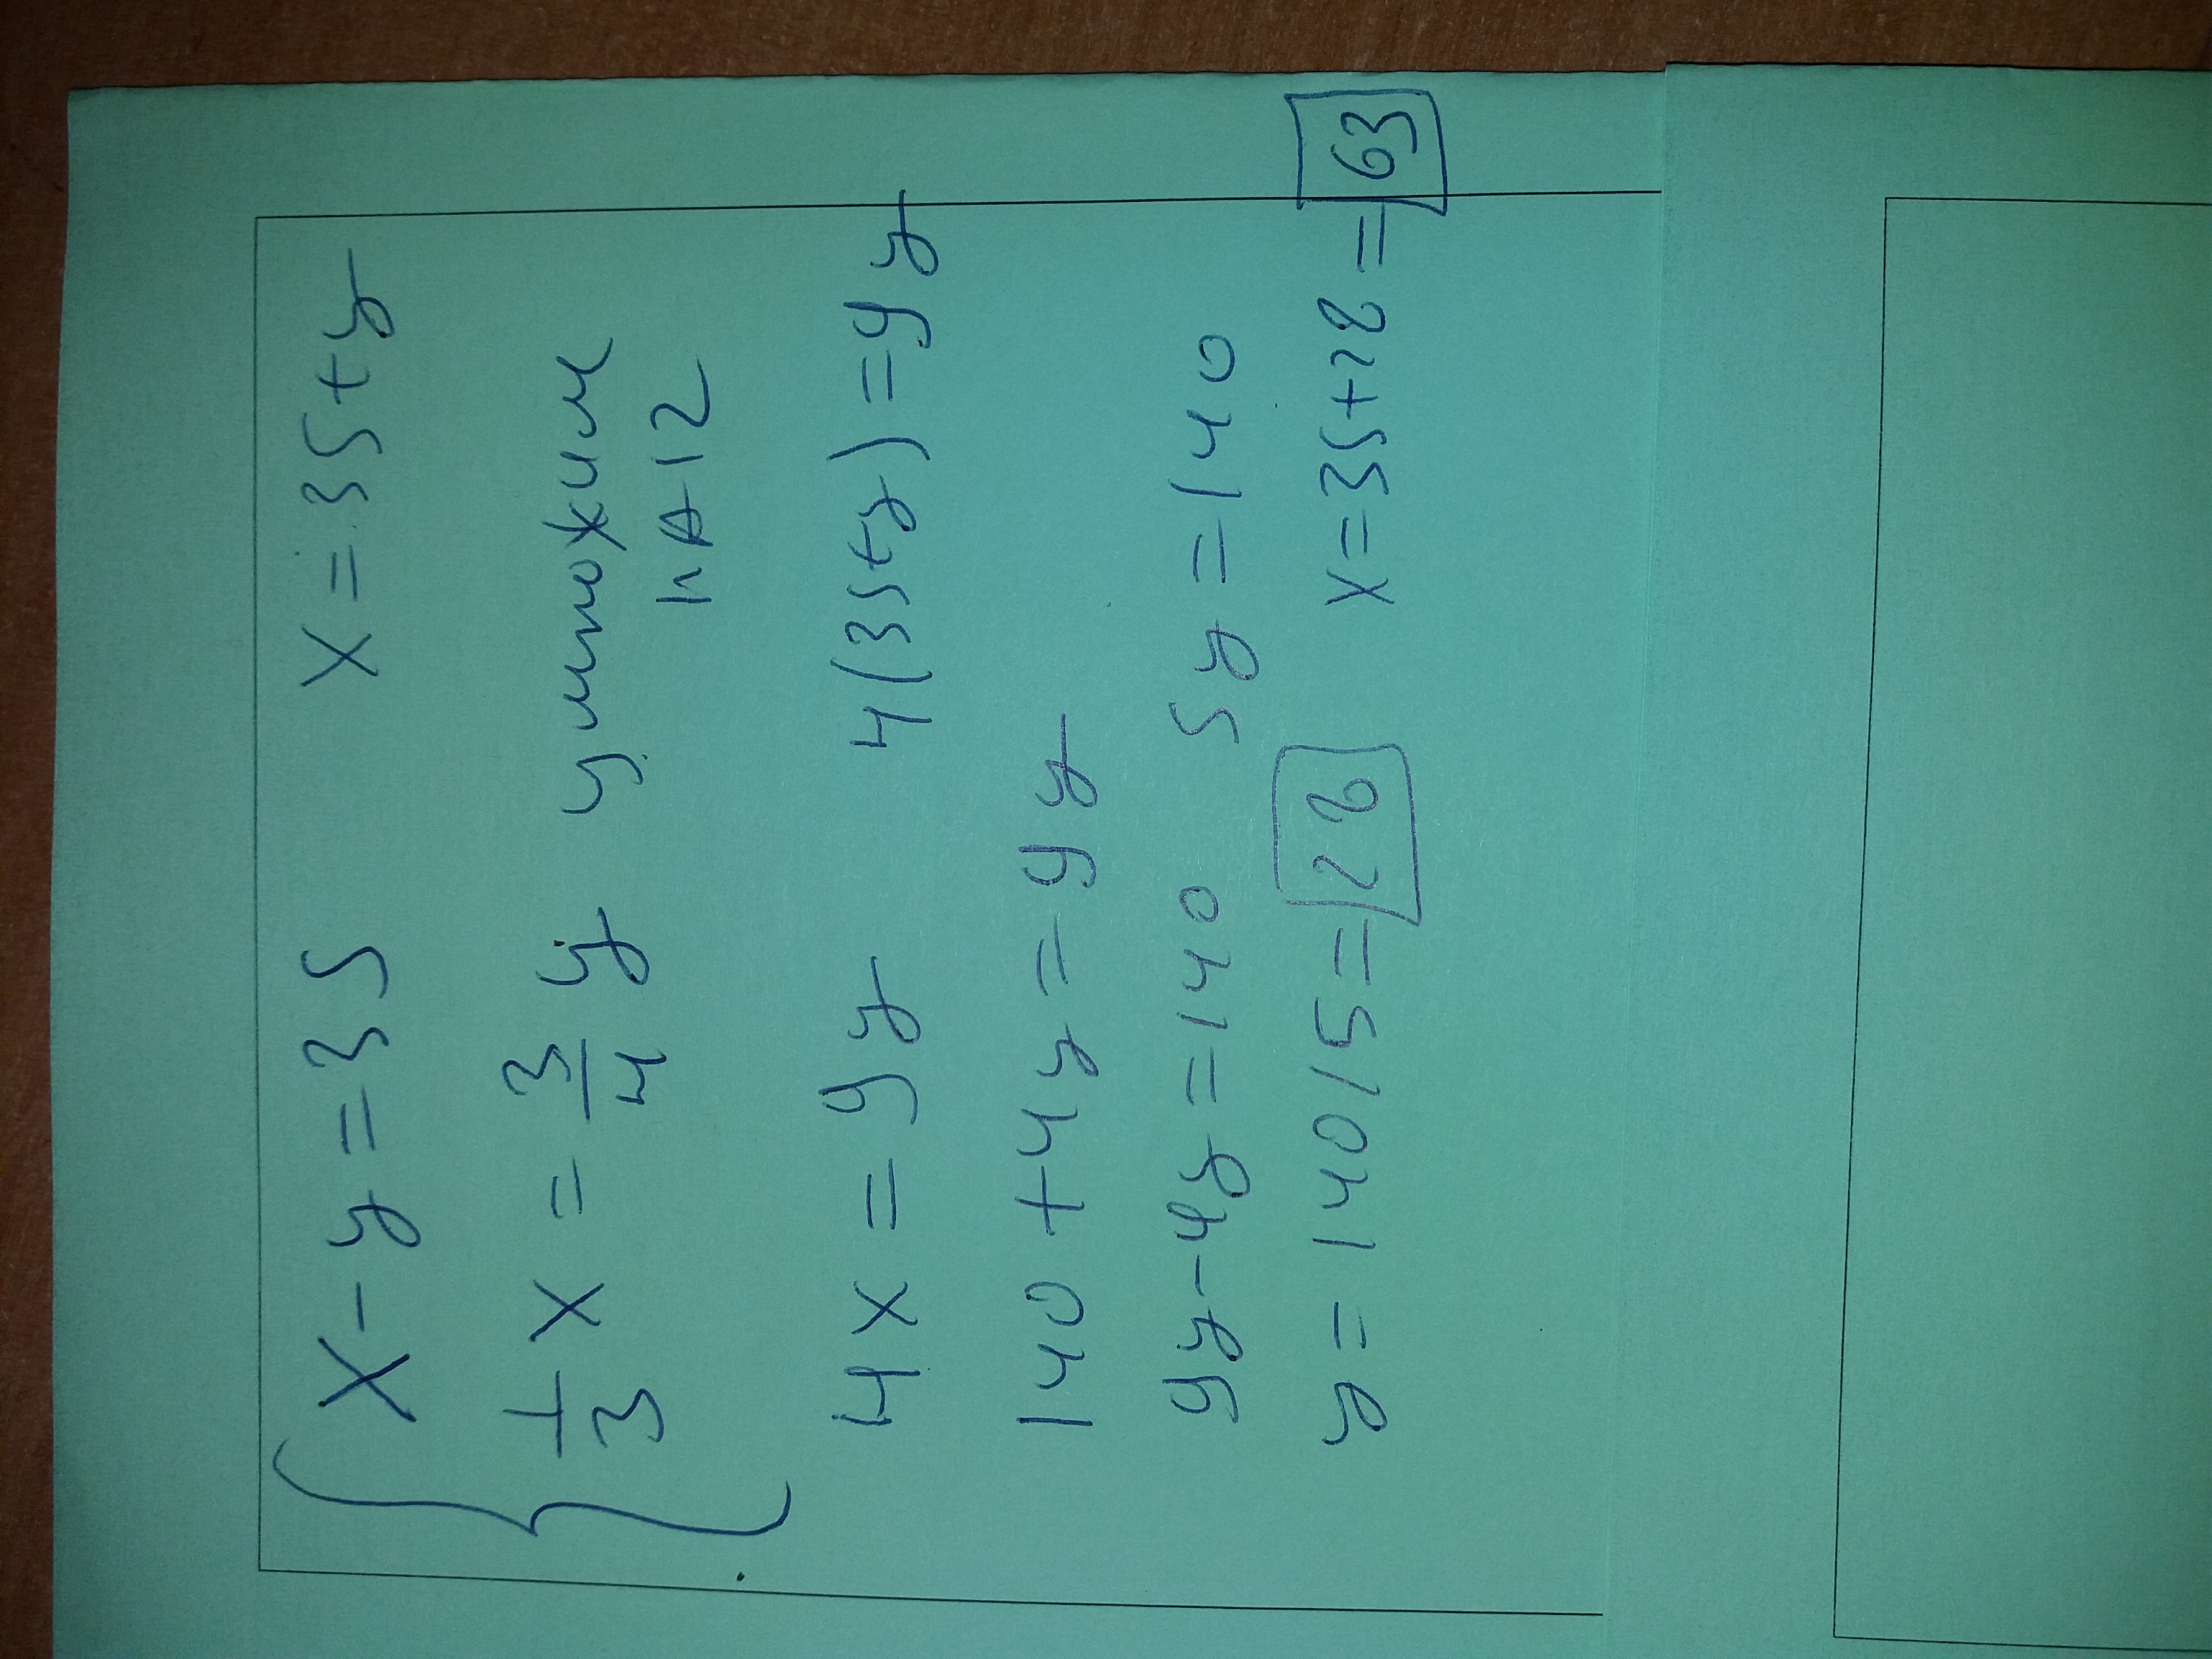 x - y = 35 x = 35 + y
1/3 x = 3/4 y умножим
на 12
4x = 9y 4(35+y) = 9y
140 + 4y = 9y
9y - 4y = 140 5y = 140
y = 140/5 = 28 x = 35+28 = 63